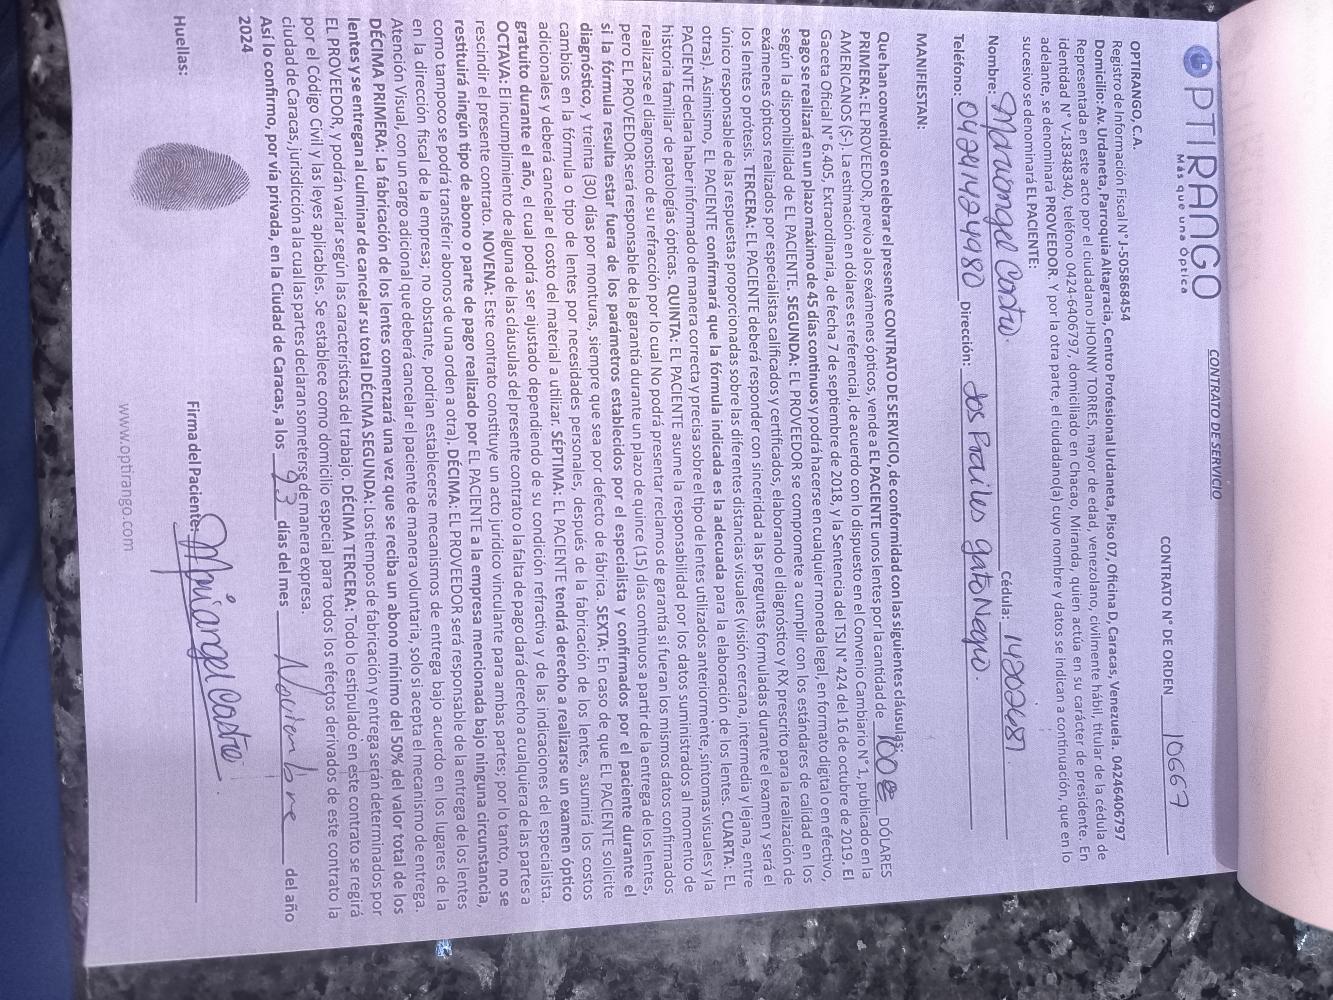 OPTIRANGO
Más que una óptica
CONTRATO DE SERVICIO
CONTRATO N° DE ORDEN 10667
OPTIRANGO, C.A.
Registro de Información Fiscal N° J-505868454
Domicilio: Av. Urdaneta, Parroquia Altagracia, Centro Profesional Urdaneta, Piso 07, Oficina D, Caracas, Venezuela. 04246406797
Representada en este acto por el ciudadano JHONNY TORRES, mayor de edad, venezolano, civilmente hábil, titular de la cédula de
identidad N° V-18348340, teléfono 0424-6406797, domiciliado en Chacao, Miranda, quien actúa en su carácter de presidente. En
adelante, se denominará PROVEEDOR. Y por la otra parte, el ciudadano(a) cuyo nombre y datos se indican a continuación, que en lo
sucesivo se denominará EL PACIENTE:
Nombre: Mariangel Castro. Cédula: 14202687
Teléfono: 04241424980 Dirección: los Frailes gato Negro.
MANIFIESTAN:
Que han convenido en celebrar el presente CONTRATO DE SERVICIO, de conformidad con las siguientes cláusulas:
PRIMERA: EL PROVEEDOR, previo a los exámenes ópticos, vende a EL PACIENTE unos lentes por la cantidad de 100 DÓLARES
AMERICANOS ($-). La estimación en dólares es referencial, de acuerdo con lo dispuesto en el Convenio Cambiario N° 1, publicado en la
Gaceta Oficial N° 6.405, Extraordinaria, de fecha 7 de septiembre de 2018, y la Sentencia del TSJ N° 424 del 16 de octubre de 2019. El
pago se realizará en un plazo máximo de 45 días continuos y podrá hacerse en cualquier moneda legal, en formato digital o en efectivo,
según la disponibilidad de EL PACIENTE. SEGUNDA: EL PROVEEDOR se compromete a cumplir con los estándares de calidad en los
exámenes ópticos realizados por especialistas calificados y certificados, elaborando el diagnóstico y RX prescrito para la realización de
los lentes o prótesis. TERCERA: EL PACIENTE deberá responder con sinceridad a las preguntas formuladas durante el examen y será el
único responsable de las respuestas proporcionadas sobre las diferentes distancias visuales (visión cercana, intermedia y lejana, entre
otras). Asimismo, EL PACIENTE confirmará que la fórmula indicada es la adecuada para la elaboración de los lentes. CUARTA: EL
PACIENTE declara haber informado de manera correcta y precisa sobre el tipo de lentes utilizados anteriormente, síntomas visuales y la
historia familiar de patologías ópticas. QUINTA: EL PACIENTE asume la responsabilidad por los datos suministrados al momento de
realizarse el diagnostico de su refracción por lo cual No podrá presentar reclamos de garantía si fueran los mismos datos confirmados
pero EL PROVEEDOR será responsable de la garantía durante un plazo de quince (15) días continuos a partir de la entrega de los lentes,
si la fórmula resulta estar fuera de los parámetros establecidos por el especialista y confirmados por el paciente durante el
diagnóstico, y treinta (30) días por monturas, siempre que sea por defecto de fábrica. SEXTA: En caso de que EL PACIENTE solicite
cambios en la fórmula o tipo de lentes por necesidades personales, después de la fabricación de los lentes, asumirá los costos
adicionales y deberá cancelar el costo del material a utilizar. SÉPTIMA: EL PACIENTE tendrá derecho a realizarse un examen óptico
gratuito durante el año, el cual podrá ser ajustado dependiendo de su condición refractiva y de las indicaciones del especialista.
OCTAVA: El incumplimiento de alguna de las cláusulas del presente contrato o la falta de pago dará derecho a cualquiera de las partes a
rescindir el presente contrato. NOVENA: Este contrato constituye un acto jurídico vinculante para ambas partes; por lo tanto, no se
restituirá ningún tipo de abono o parte de pago realizado por EL PACIENTE a la empresa mencionada bajo ninguna circunstancia,
como tampoco se podrá transferir abonos de una orden a otra). DÉCIMA: EL PROVEEDOR será responsable de la entrega de los lentes
en la dirección fiscal de la empresa; no obstante, podrían establecerse mecanismos de entrega bajo acuerdo en los lugares de la
Atención Visual, con un cargo adicional que deberá cancelar el paciente de manera voluntaria, solo si acepta el mecanismo de entrega.
DÉCIMA PRIMERA: La fabricación de los lentes comenzará una vez que se reciba un abono mínimo del 50% del valor total de los
lentes y se entregan al culminar de cancelar su total DÉCIMA SEGUNDA: Los tiempos de fabricación y entrega serán determinados por
EL PROVEEDOR, y podrán variar según las características del trabajo. DÉCIMA TERCERA: Todo lo estipulado en este contrato se regirá
por el Código Civil y las leyes aplicables. Se establece como domicilio especial para todos los efectos derivados de este contrato la
ciudad de Caracas, jurisdicción a la cual las partes declaran someterse de manera expresa.
Así lo confirmo, por vía privada, en la Ciudad de Caracas, a los 23 días del mes Noviembre del año
2024
Huellas:
Firma del Paciente: Mariangel Castro
www.optirango.com